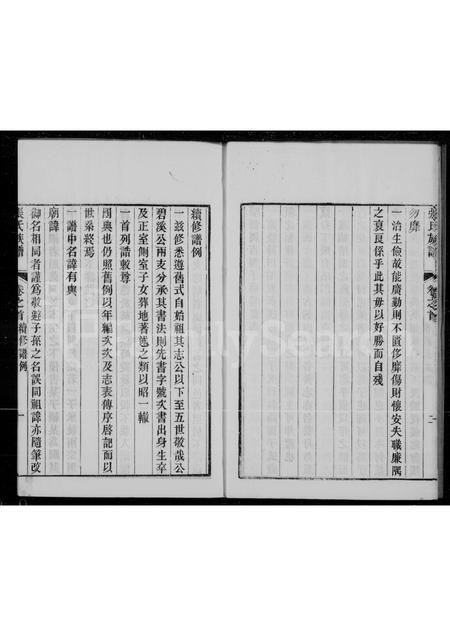 張氏族譜 卷之首 二
勿靡
一治生儉故能廣勤則不匱侈靡傷財懷安失職廉隅
之衰艮係乎此其毋以好勝而自殘
續修譜例
一茲修悉遵舊式自始祖其志公以下至五世敬哉公
碧溪公兩支分承其書法則先書字號次書出身生卒
及正室側室子女葬地著葹之類以昭一轍
一首列誥敕尊
國典也仍照舊例以年編次次及志表傳序啓記而以
世系終焉
一譜中名諱有與
廟諱
御名相同者謹爲敬避子孫之名誤同祖諱亦隨筆改
張氏族譜 卷之首 續修譜例 一
FamilySearch